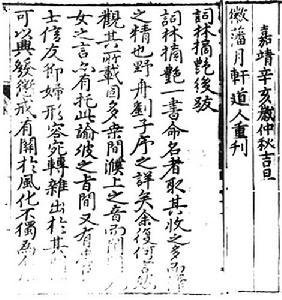 嘉靖辛亥歲仲秋吉旦
徽藩月軒道人重刊
詞林摘艷後跋
詞林摘艷一書命名者取其收之多而
之精也野舟劉子序之詳矣余復何言
觀其所載固多桑間濮上之音而閨
女之言亦有托此諭彼之旨間又有
士信友婦形容宛轉雜出於其
可以興發懲戒有關於風化不獨為